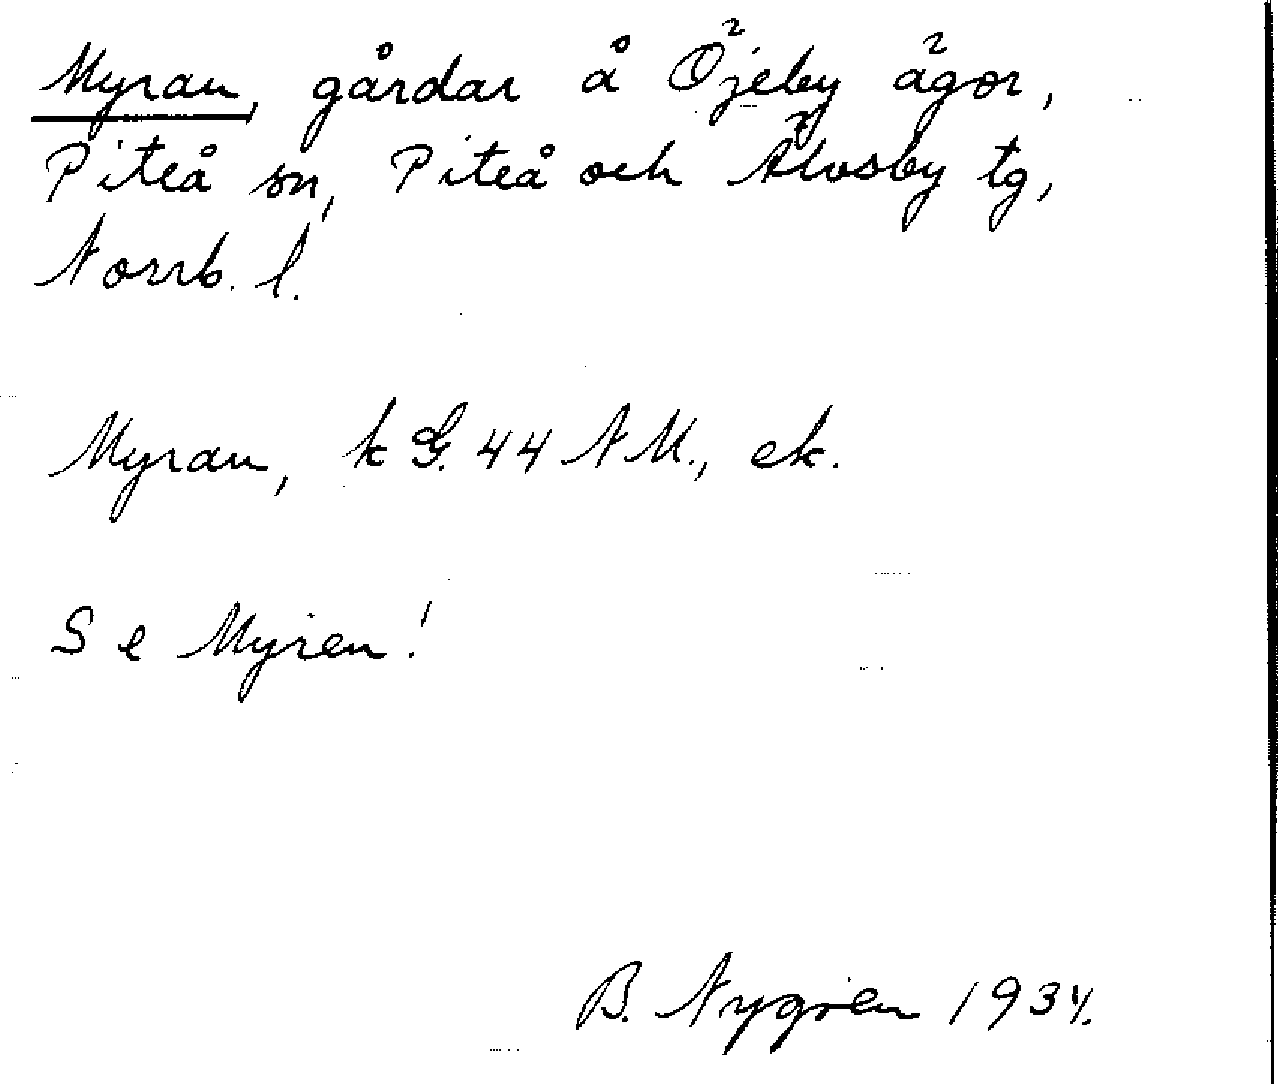 Myran, gårdar å Öjeby ägor,
Piteå sn, Piteå och Älvsby tg,
Norrb. l.
Myran, k G. 44 NM., ek.
Se Myren!
B. Nygren 1934.